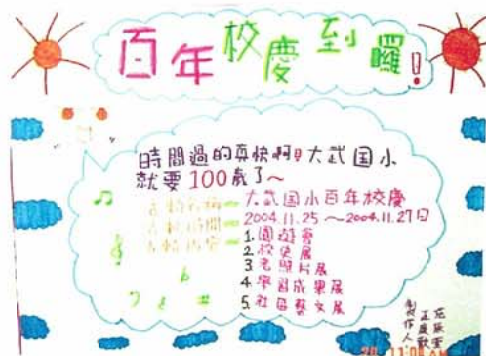 百年校慶到囉!
時間過的真快啊!大武国小
就要100歲了～
活動名稱 大武国小百年校慶
活動時間 2004.11.25～2004.11.27日
活動內容 1.園遊會
2.校史展
3.老照片展
4.學習成果展
5.社區藝文展
製作人: